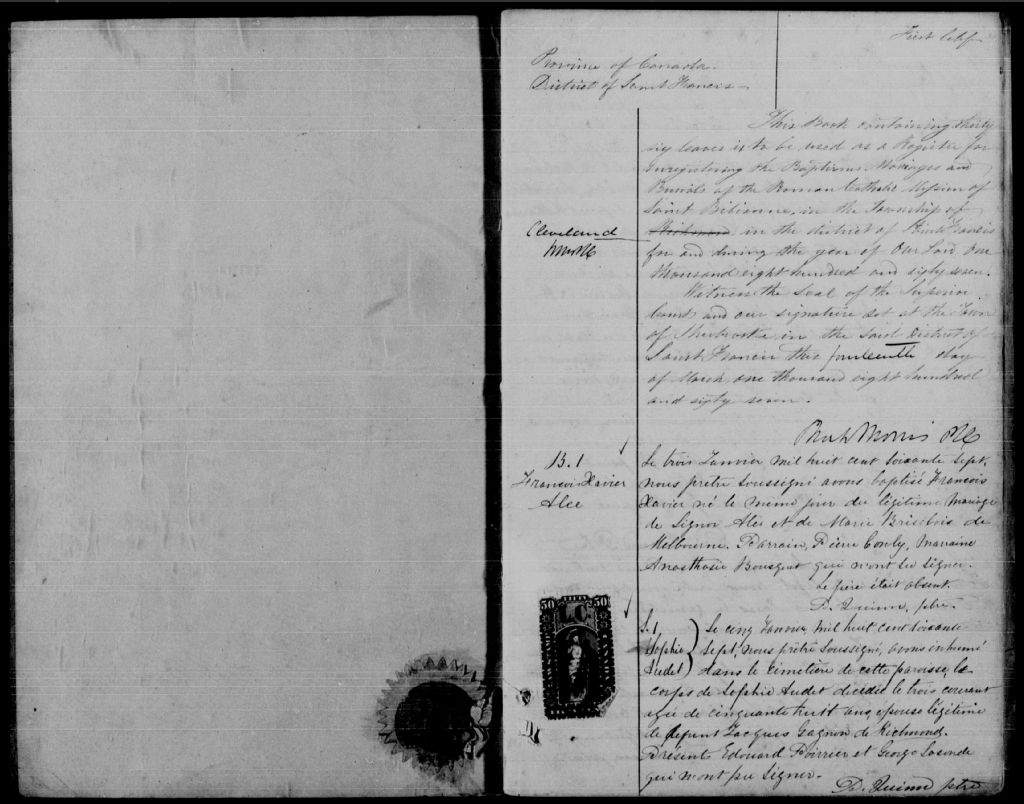 First
Province of Canada
District of Saint Francis
This Book containing thirty
six leaves is to be used as a Register for
the Baptisms Mariages and
Burials of the Roman Catholic Mission of
Saint Bibianne, in the Township of
Cleveland
Richmond in the district of Saint Francis
for and during the year of Our Lord One
thousand eight hundred and sixty seven.
Witness the Seal of the Superior
Court and our signature set at the Town
of Sherbrooke in the said District of
Saint Francis this fourteenth day
of March one thousand eight hundred
and sixty seven.
Morris
B. 1
Francois Xavier
Alee
Le trois Janvier mil huit cent soixante sept,
nous prêtre soussigné avons baptisé Francois
Xavier né le même jour du légitime mariage
de Signor Alee et de Marie Brisebois de
Melbourne. Parrain, Pierre Conly, marraine
Anasthasie Bousquet qui n'ont su signer.
Le père était absent.
D. Quinn, ptre.
50 LC 50
S. 1
Sophie
Audet
Le cinq Janvier, mil huit cent soixante
sept, nous prêtre soussigné, avons inhumé
dans le cimetière de cette paroisse, le
corps de Sophie Audet décédée le trois courant
agée de cinquante huit ans, épouse légitime
de défunt Jacques Gagnon de Richmond.
Présents Edouard Poirrier et George
qui n'ont pu signer.
D. Quinn ptre